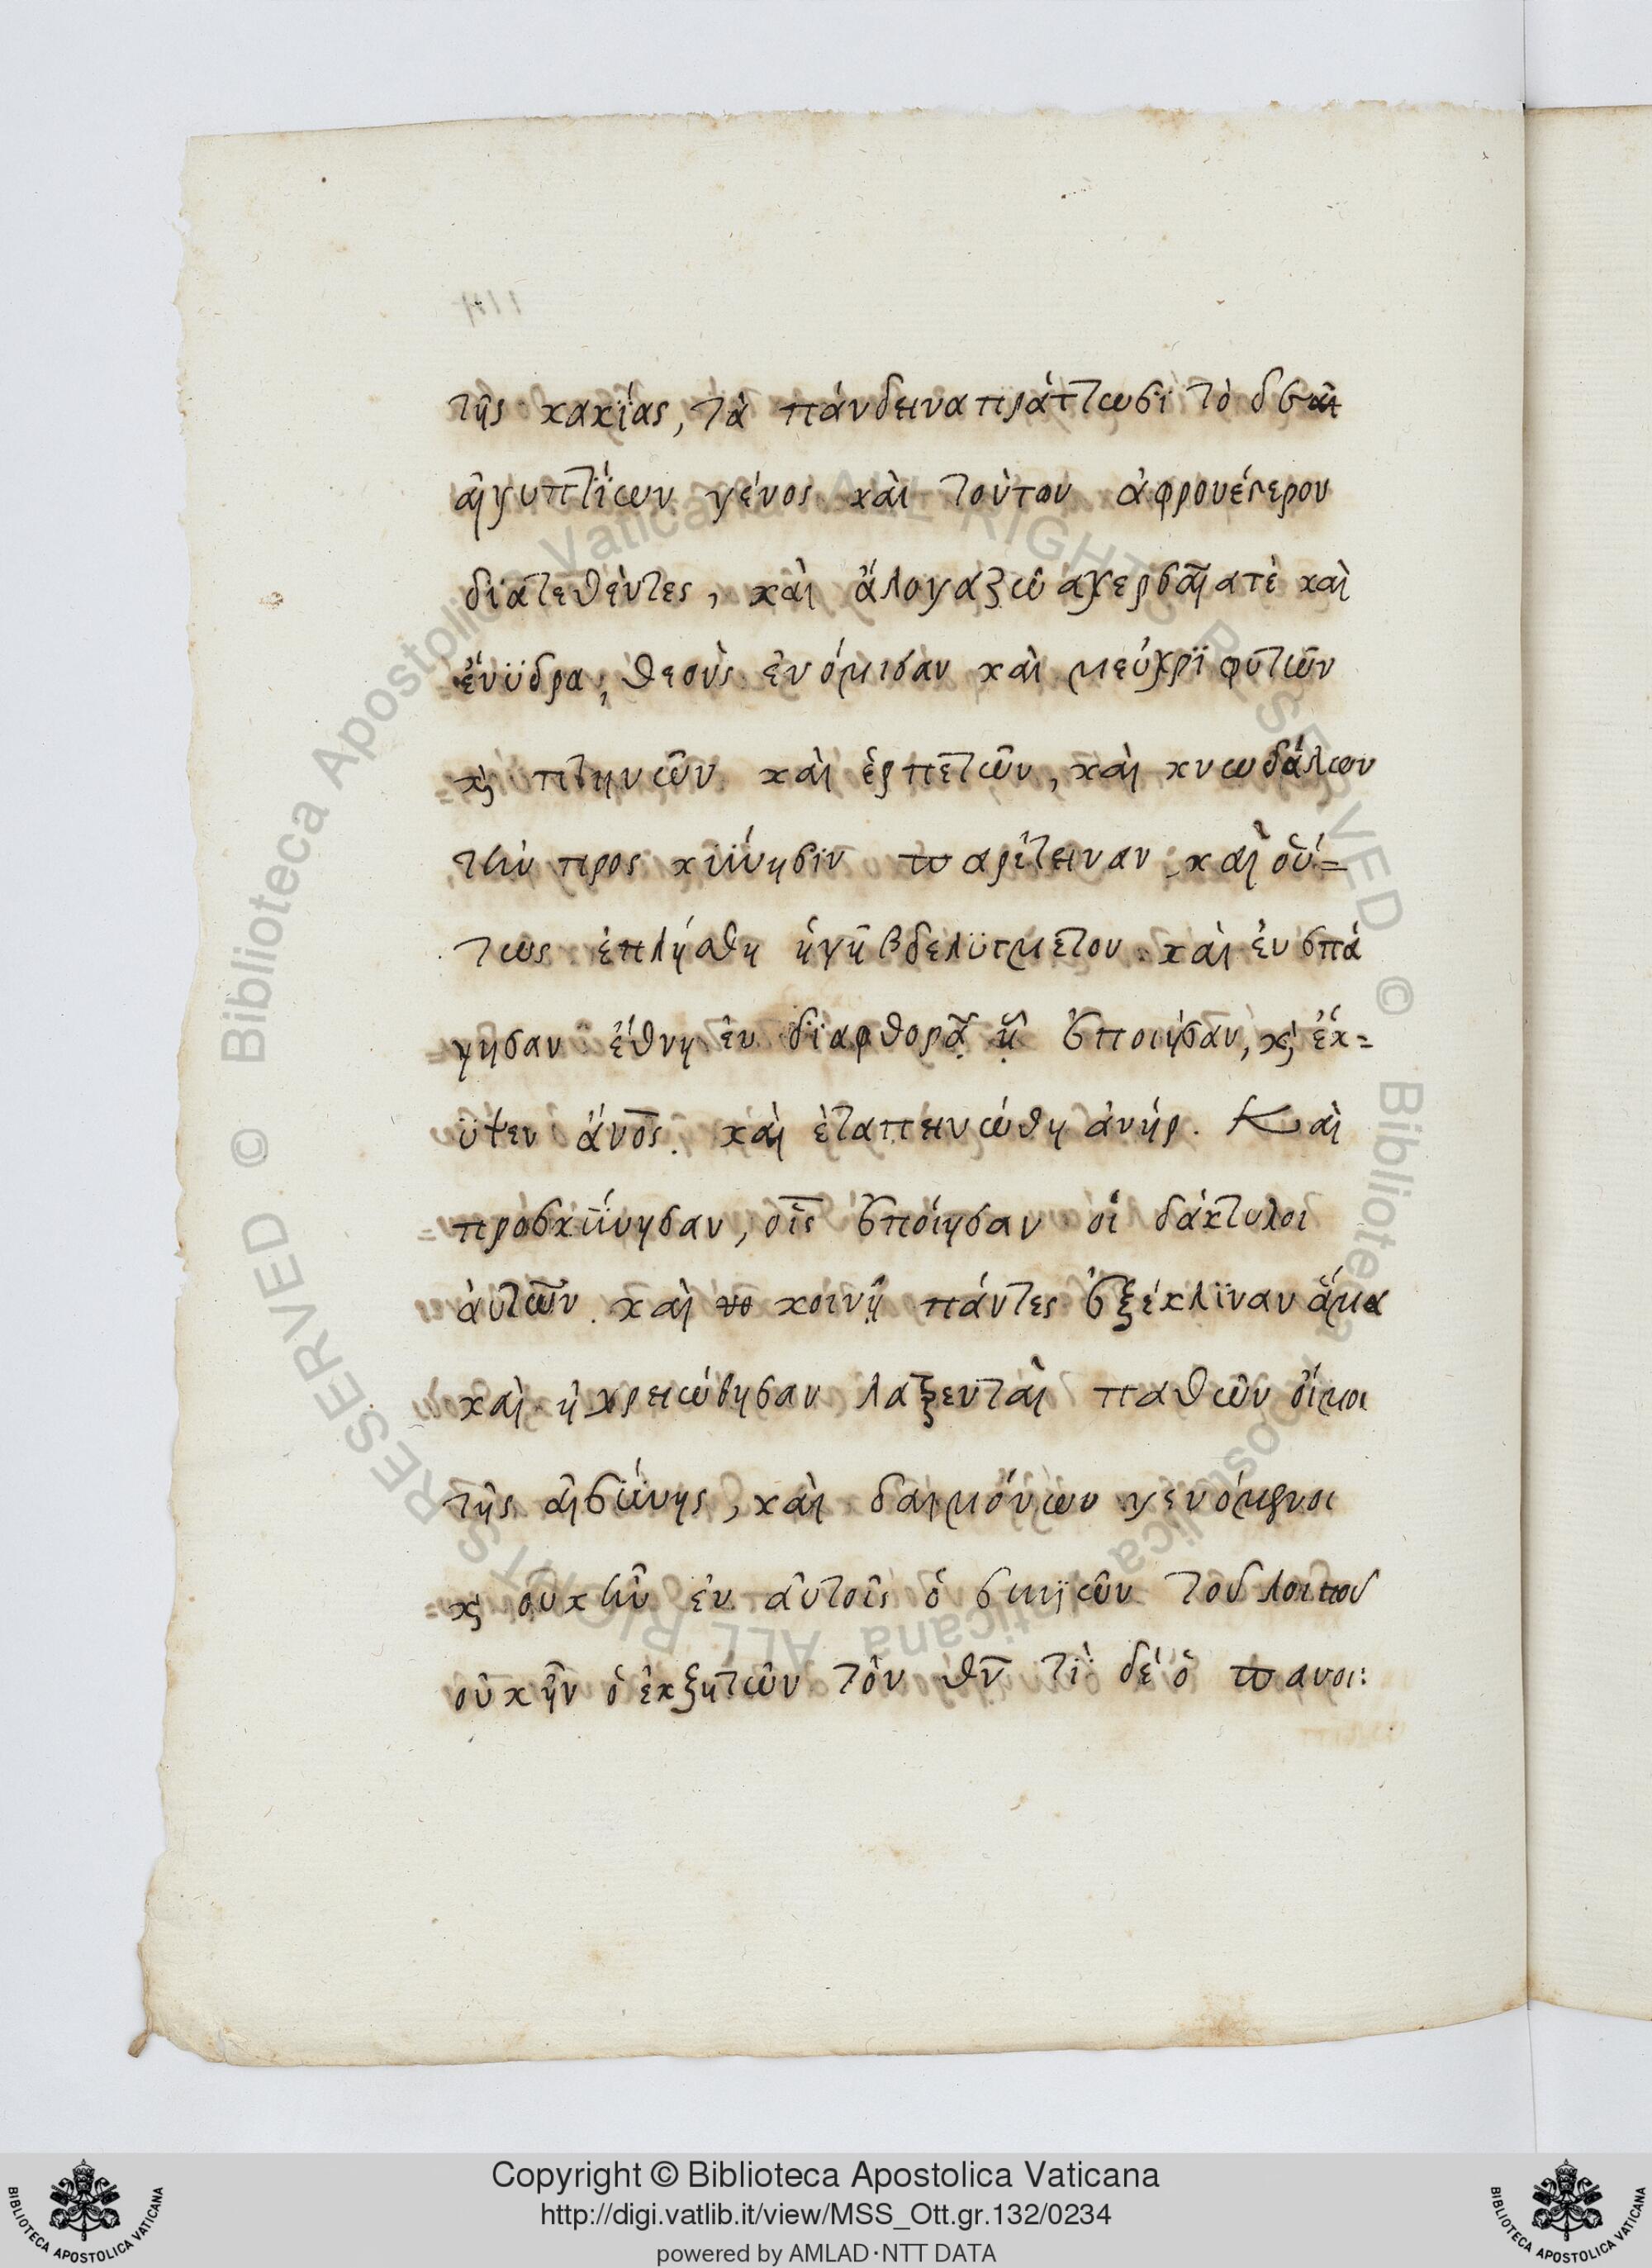 τῆς κακΐας, τὰ πάνδεινα πράττωσϊ τὸ δὲ
αἰγυπτΐων γένος καὶ τούτου ἀφρονέστερον
διατεθέντες, καὶ ἄλογα ζῶα χερσαῖα τὲ καὶ
ἔνϋδρα, θεοὺς ἐνόμισαν καὶ μεύχρϊ φυτῶν
καὶ πτηνῶν καὶ ἑρπετῶν, καὶ κνωδάλων
τὴν προσκϋνησϊν παρέτειναν, καὶ οὕ=
τως ἐπλήσθη ἡ γῆ βδελϋγμάτου. καὶ ἐνεπά
γησαν ἔθνη ἐν διαφθορᾷ ᾗ ἐποιήσαν, καὶ ἔκ=
ϋψεν ἄνος. καὶ ἐταπεινώθη ἀνήρ. Καὶ
προσκϋνησαν, οἷς ἐποίησαν οἱ δάκτυλοι
αὐτῶν. καὶ κοινῇ πάντες ἐξέκλϊναν ἅμα
καὶ ἠχρειώθησαν λαξευταὶ παθῶν
τῆς αἰσϋνης, καὶ δαιμόνων γενόμενοι
καὶ οὐκ ἦν ἐν αὐτοῖς ὁ συνϊῶν τοῦ λοιποῦ
οὐκ ἦν ὁ ἐκζητῶν τὸν θν τὶ δὲ ὁ πανοι:
Copyright © Biblioteca Apostolica Vaticana
http://digi.vatlib.it/view/MSS_Ott.gr.132/0234
powered by AMLAD·NTT DATA